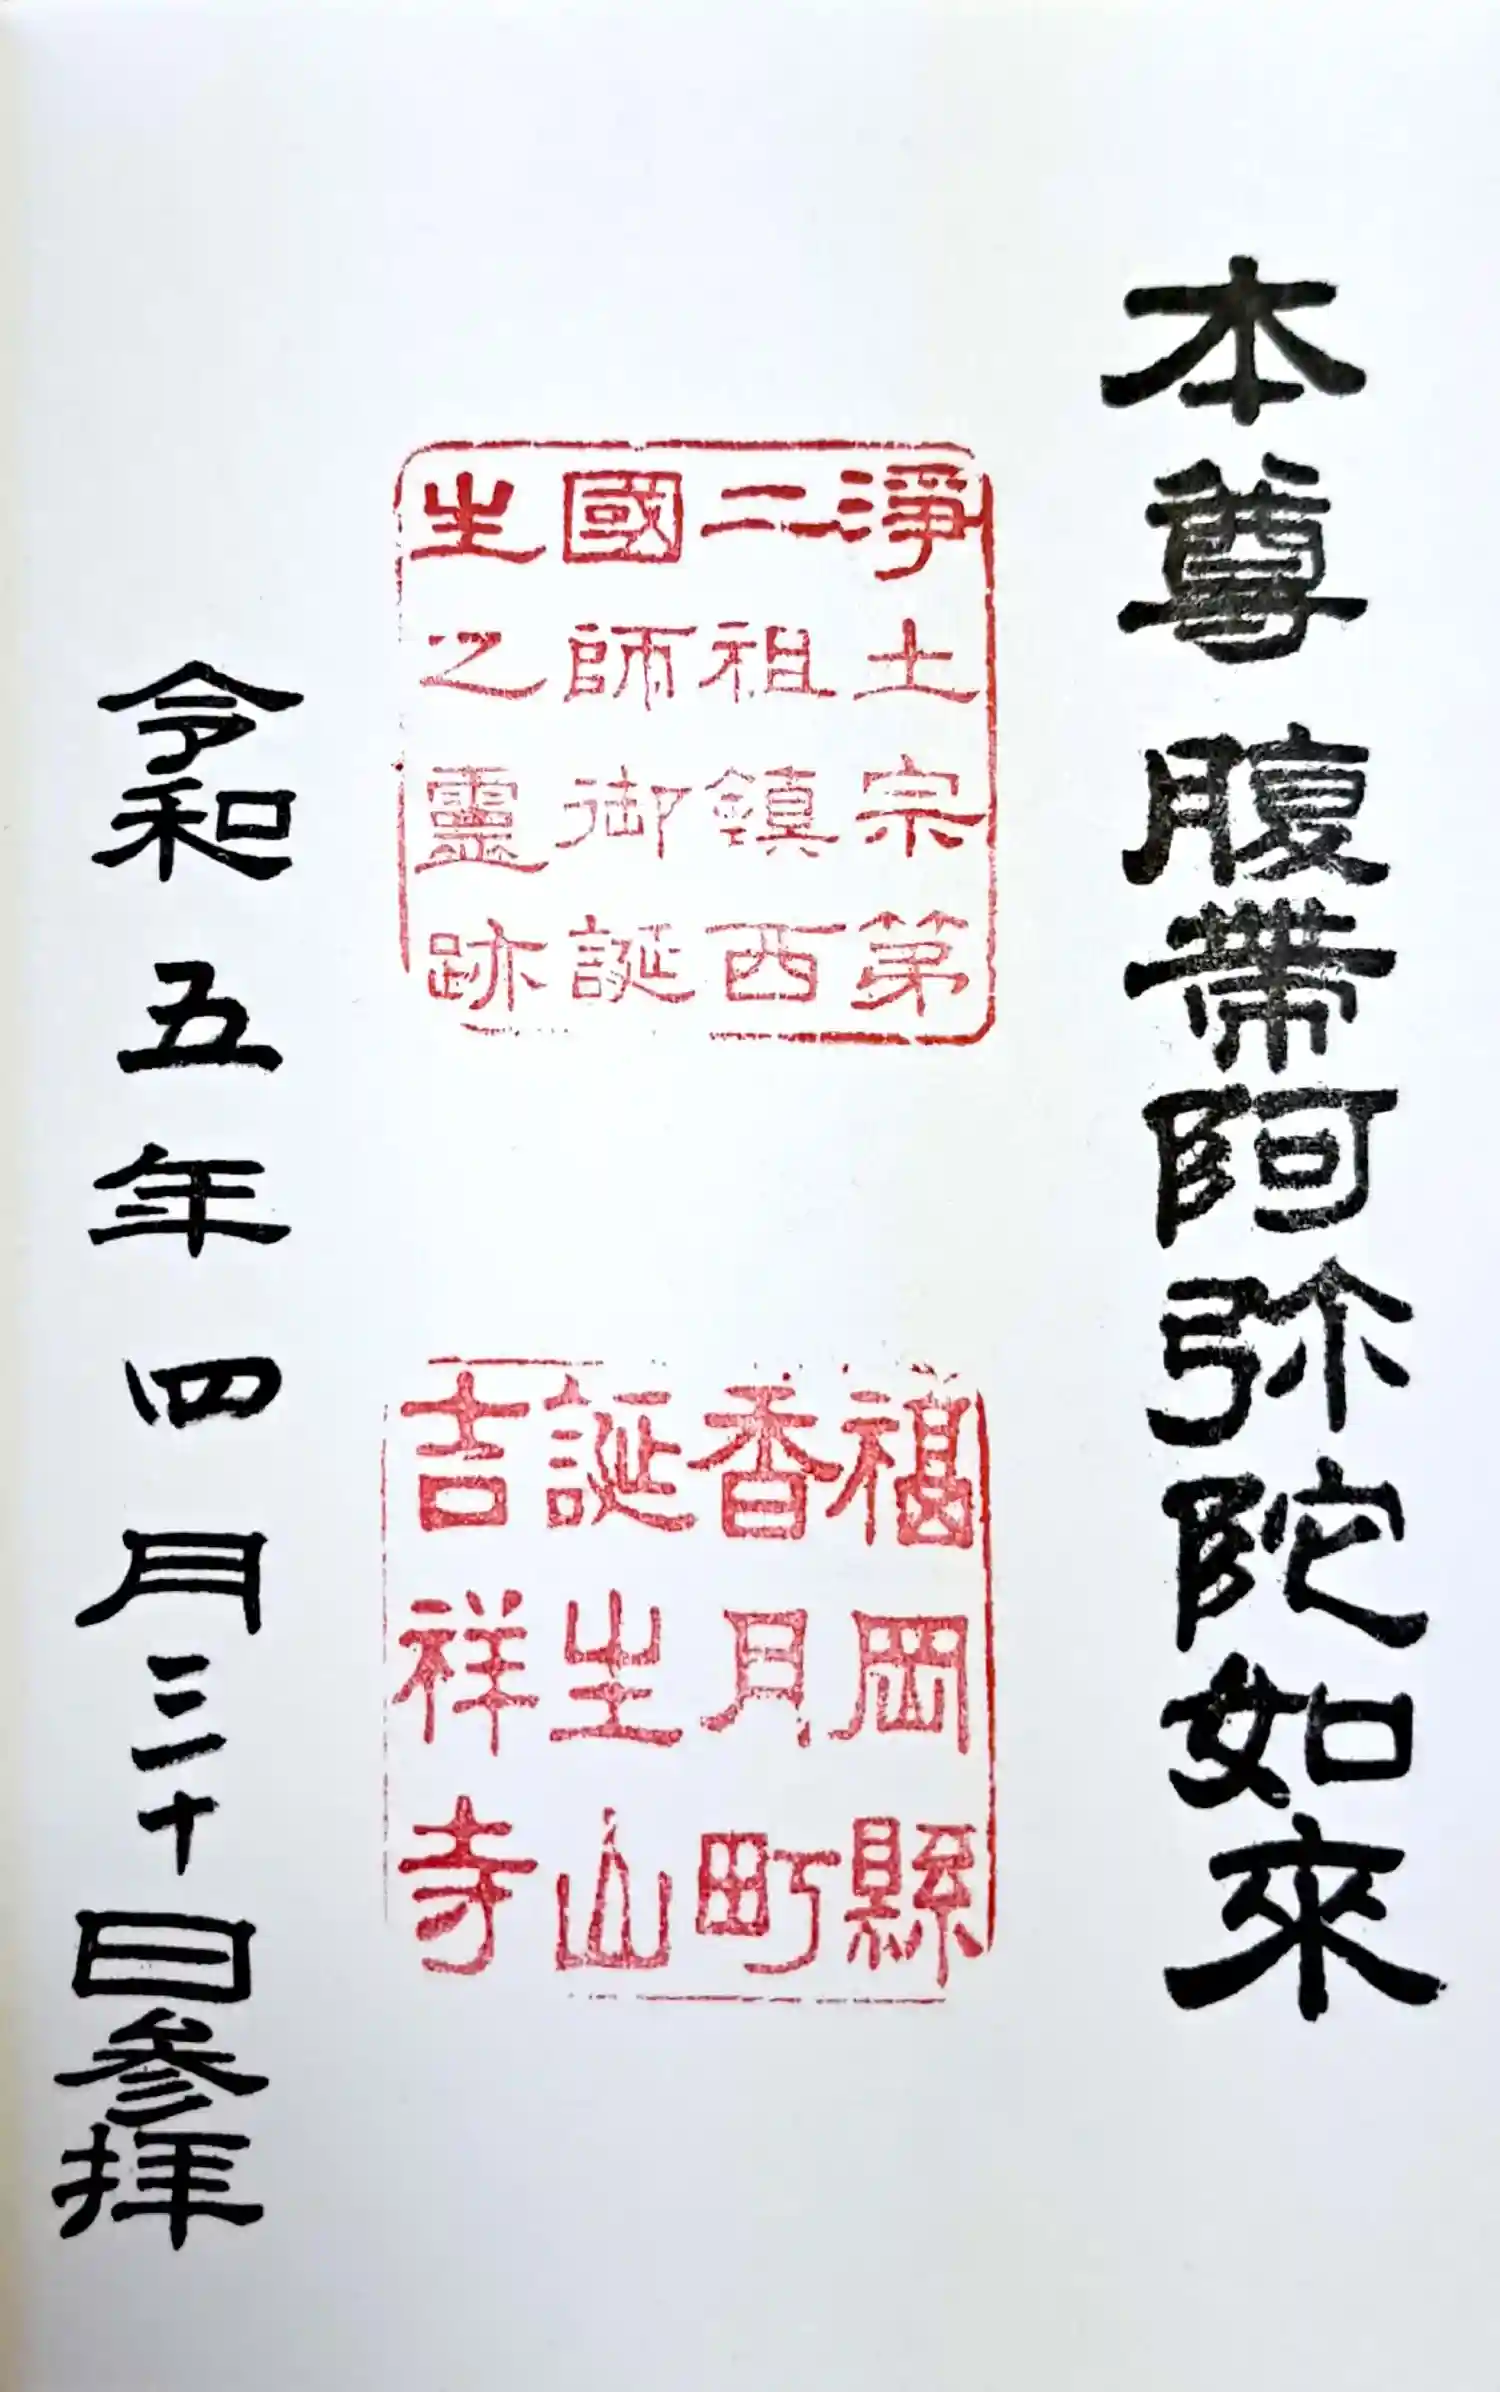 本尊腹帯阿弥陀如來
淨土宗第
二祖鎮西
國師御誕
生之靈跡
福岡縣
香月町
誕生山
吉祥寺
令和五年四月三十日参拝